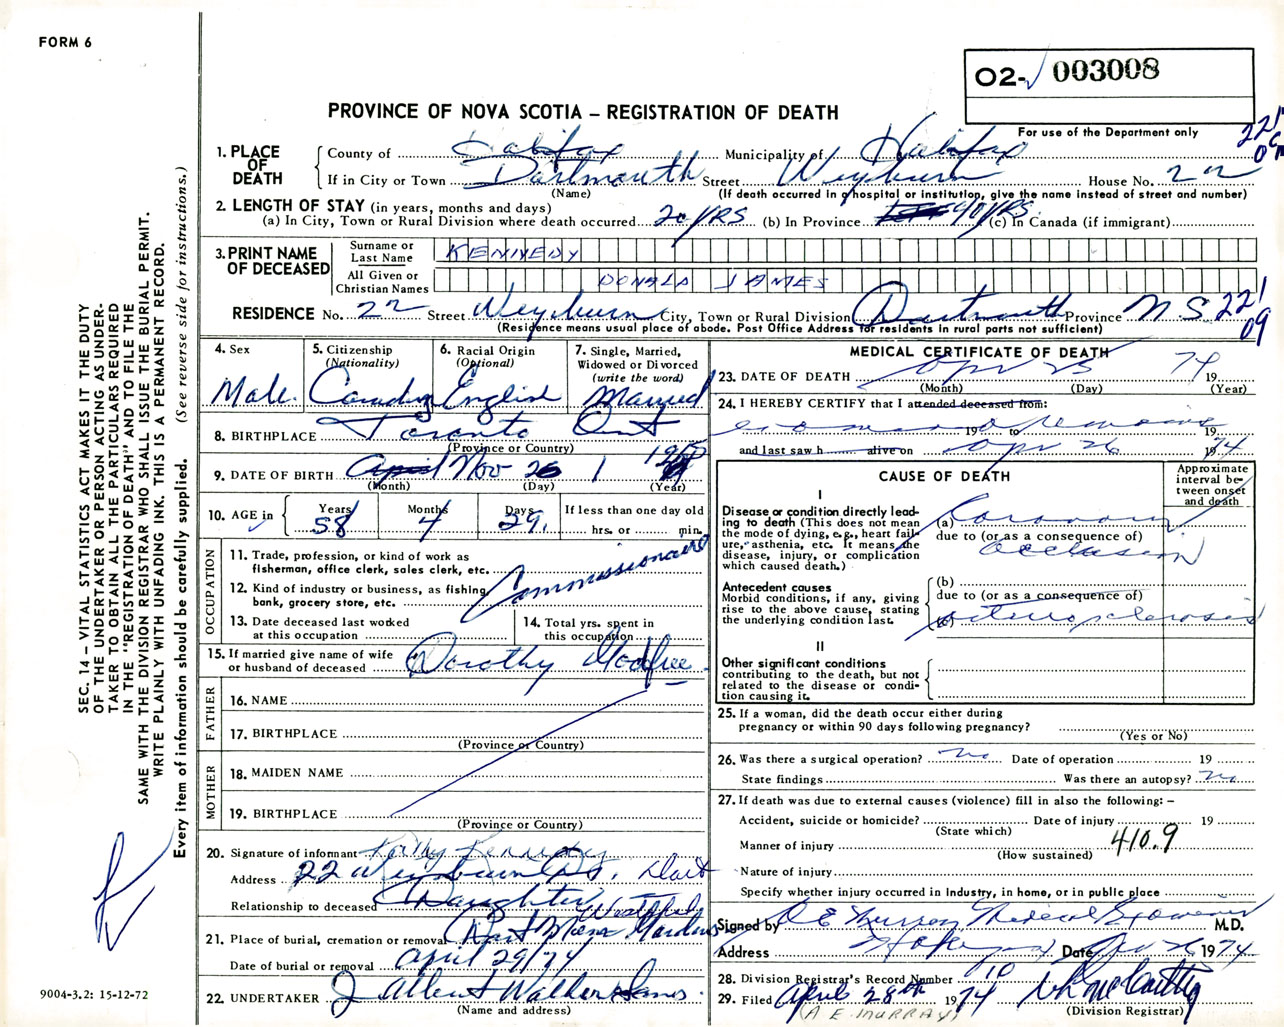 FORM 6
O2-√ 003008
PROVINCE OF NOVA SCOTIA – REGISTRATION OF DEATH
For use of the Department only
221
09
1. PLACE OF DEATH
County of Halifax Municipality of Halifax
If in City or Town Dartmouth Street Weyburn House No. 22
(Name) (If death occurred in hospital or institution, give the name instead of street and number)
2. LENGTH OF STAY (in years, months and days)
(a) In City, Town or Rural Division where death occurred 20 YRS (b) In Province 40 YRS. (c) In Canada (if immigrant)
3. PRINT NAME OF DECEASED
Surname or Last Name KENNEDY
All Given or Christian Names DONALD JAMES
RESIDENCE No. 22 Street Weyburn City, Town or Rural Division Dartmouth Province N.S. 221
09
(Residence means usual place of abode. Post Office Address for residents in rural parts not sufficient)
4. Sex
Male
5. Citizenship (Nationality)
6. Racial Origin (Optional)
English
7. Single, Married, Widowed or Divorced (write the word)
Married
8. BIRTHPLACE Toronto Ont
(Province or Country)
9. DATE OF BIRTH April Nov 26 1
(Month) (Day) (Year)
10. AGE in Years 58 Months 4 Days 29. If less than one day old
hrs. or min.
OCCUPATION
11. Trade, profession, or kind of work as fisherman, office clerk, sales clerk, etc.
Commissionaire
12. Kind of industry or business, as fishing, bank, grocery store, etc.
13. Date deceased last worked at this occupation
14. Total yrs. spent in this occupation
15. If married give name of wife or husband of deceased Dorothy Godfree
FATHER
16. NAME
17. BIRTHPLACE
(Province or Country)
MOTHER
18. MAIDEN NAME
19. BIRTHPLACE
(Province or Country)
20. Signature of informant Kathy Kennedy
Address 22 Weyburn Dart
Relationship to deceased Daughter
21. Place of burial, cremation or removal Dart Mem Gardens
Date of burial or removal April 29/74
22. UNDERTAKER J Albert Walker & Sons
(Name and address)
MEDICAL CERTIFICATE OF DEATH
23. DATE OF DEATH Apr 25 74 19
(Month) (Day) (Year)
24. I HEREBY CERTIFY that I attended deceased from:
19 to remains 19
and last saw h alive on Apr 26 1974
CAUSE OF DEATH
Approximate interval between onset and death
I
Disease or condition directly leading to death (This does not mean the mode of dying, e.g., heart failure, asthenia, etc. It means the disease, injury, or complication which caused death.)
(a) Coronary
due to (or as a consequence of)
occlusion
Antecedent causes
Morbid conditions, if any, giving rise to the above cause, stating the underlying condition last.
(b)
due to (or as a consequence of)
(c) arteriosclerosis
II
Other significant conditions contributing to the death, but not related to the disease or condition causing it.
25. If a woman, did the death occur either during pregnancy or within 90 days following pregnancy?
(Yes or No)
26. Was there a surgical operation? no Date of operation 19
State findings Was there an autopsy? no
27. If death was due to external causes (violence) fill in also the following: –
Accident, suicide or homicide? Date of injury 19
(State which)
Manner of injury 410.9
(How sustained)
Nature of injury
Specify whether injury occurred in Industry, in home, or in public place
Signed by A E Murray Medical Examiner M.D.
Address Date 1974
28. Division Registrar's Record Number 910
29. Filed April 28th 1974
(A. E. MURRAY) (Division Registrar)
SEC. 14 – VITAL STATISTICS ACT MAKES IT THE DUTY
OF THE UNDERTAKER OR PERSON ACTING AS UNDER-
TAKER TO OBTAIN ALL THE PARTICULARS REQUIRED
IN THE "REGISTRATION OF DEATH" AND TO FILE THE
SAME WITH THE DIVISION REGISTRAR WHO SHALL ISSUE THE BURIAL PERMIT.
WRITE PLAINLY WITH UNFADING INK. THIS IS A PERMANENT RECORD.
Every item of information should be carefully supplied. (See reverse side for instructions.)
9004-3.2: 15-12-72